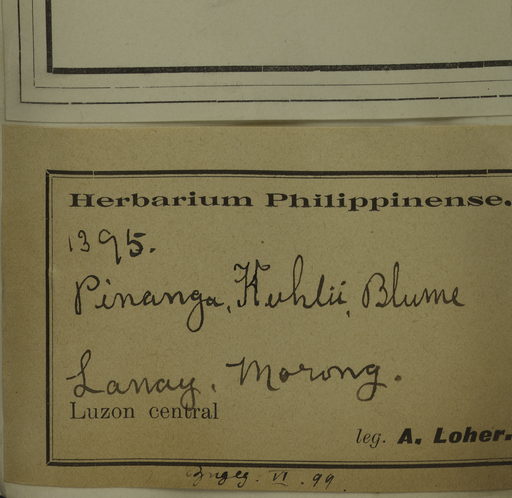 Herbarium Philippinense.
1395.
Pinanga, Kuhlii, Blume
Lanay, Morong.
Luzon central
leg. A. Loher.
VI. 99.